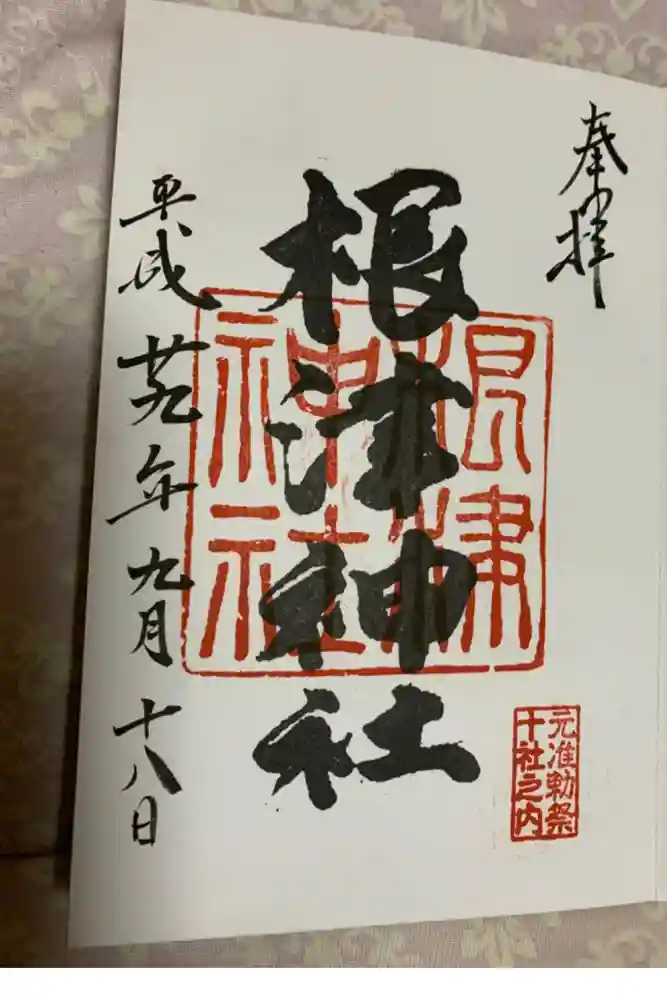 奉拝
根津神社
根津神社
元准勅祭
十社之内
平成廿九年九月十八日